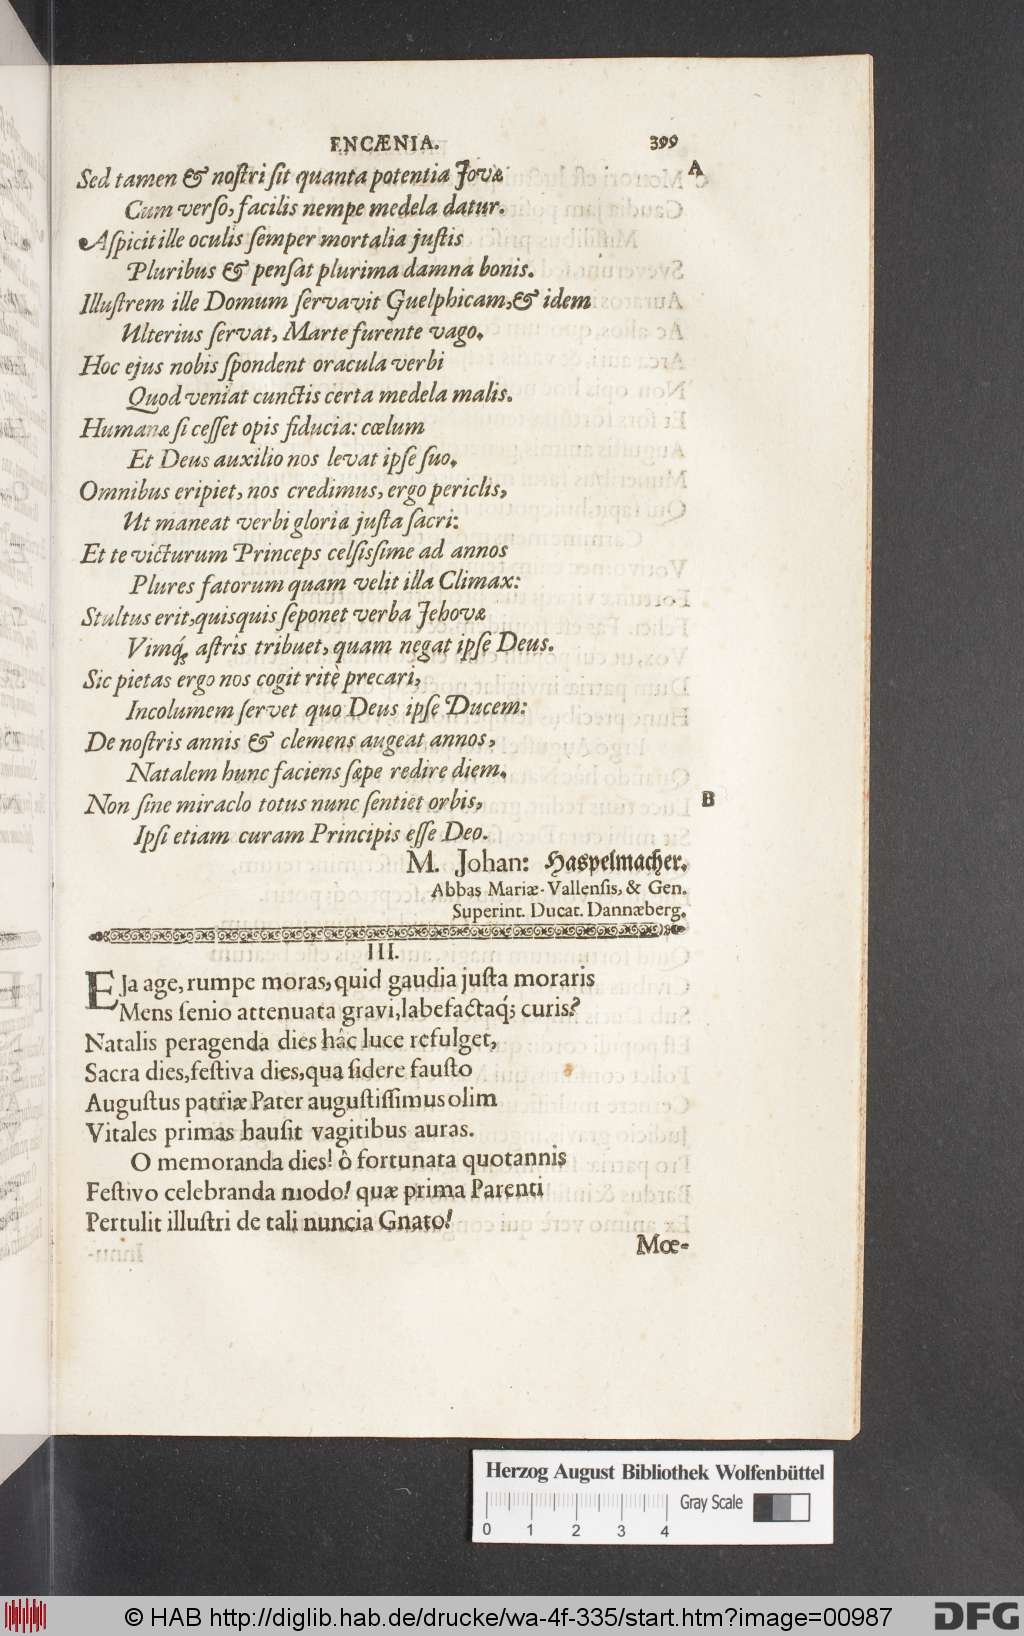 ENCÆNIA. 399
A
Sed tamen & noſtri ſit quanta potentia Jovæ
Cum verſo, facilis nempe medela datur.
Aſpicit ille oculis ſemper mortalia juſtis
Pluribus & penſat plurima damna bonis.
Illuſtrem ille Domum ſervavit Guelphicam, & idem
Ulterius ſervat, Marte furente vago.
Hoc ejus nobis ſpondent oracula verbi
Quod veniat cunctis certa medela malis.
Humanæ ſi ceſſet opis fiducia: cœlum
Et Deus auxilio nos levat ipſe ſuo.
Omnibus eripiet, nos credimus, ergo periclis,
Ut maneat verbi gloria juſta ſacri:
Et te victurum Princeps celſisſime ad annos
Plures fatorum quam velit illa Climax:
Stultus erit, quisquis ſeponet verba Jehovæ
Vimq́; aſtris tribuet, quam negat ipſe Deus.
Sic pietas ergo nos cogit ritè precari,
Incolumem ſervet quo Deus ipſe Ducem:
De noſtris annis & clemens augeat annos,
Natalem hunc faciens ſæpe redire diem.
Non ſine miraclo totus nunc ſentiet orbis,
B
Ipſi etiam curam Principis eſſe Deo.
M. Johan: Haspelmacher.
Abbas Mariæ-Vallenſis, & Gen.
Superint. Ducat. Dannæberg.
III.
EJa age, rumpe moras, quid gaudia juſta moraris
Mens ſenio attenuata gravi, labefactaq́; curis?
Natalis peragenda dies hâc luce refulget,
Sacra dies, feſtiva dies, qua ſidere fauſto
Auguſtus patriæ Pater auguſtiſſimus olim
Vitales primas hauſit vagitibus auras.
O memoranda dies! ô fortunata quotannis
Feſtivo celebranda modo! quæ prima Parenti
Pertulit illuſtri de tali nuncia Gnato!
Mœ-
Herzog August Bibliothek Wolfenbüttel
Gray Scale
0 1 2 3 4
© HAB http://diglib.hab.de/drucke/wa-4f-335/start.htm?image=00987
DFG